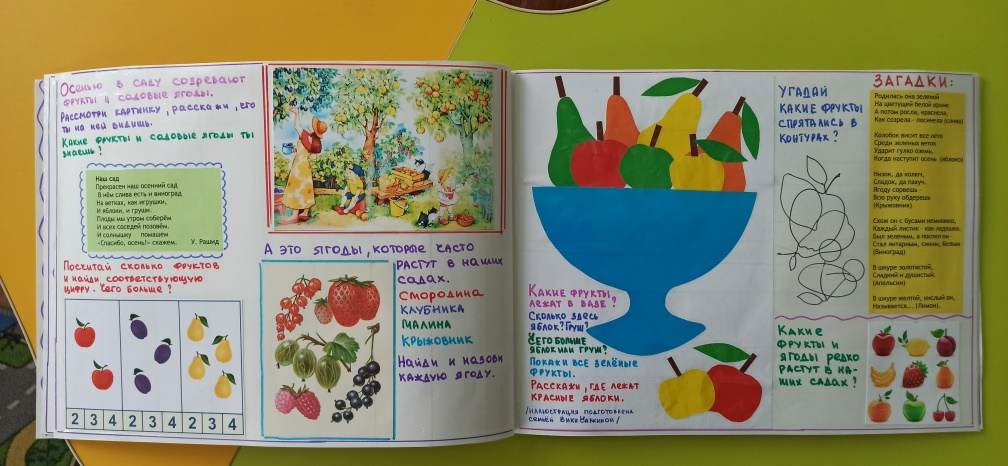 Осенью в саду созревают
фрукты и садовые ягоды.
Рассмотри картинку, расскажи, его
ты на ней видишь.
Какие фрукты и садовые ягоды ты
знаешь?
Наш сад
Прекрасен наш осенний сад
В нём слива есть и виноград
На ветках, как игрушки,
И яблоки, и груши.
Плоды мы утром соберём
И всех соседей позовём.
И солнышку помашем
«Спасибо, осень!» скажем. У. Рашид
Посчитай сколько фруктов
и найди соответствующую
цифру. Чего больше?
2 3 4 2 3 4 2 3 4
А это ягоды, которые часто
растут в наших
садах.
Смородина
Клубника
Малина
Крыжовник
Найди и назови
каждую ягоду.
Какие фрукты
лежат в вазе?
Сколько здесь
яблок? Груш?
Чего больше
яблок или груш?
Покажи все зелёные
фрукты.
Расскажи, где лежат
красные яблоки.
/Иллюстрация подготовлена
семьёй Вики
Угадай
какие фрукты
спрятались в
контурах?
Загадки:
Родилась она зеленой
На цветущей белой кроне.
А потом росла, краснела,
Как созрела - посинела (слива)
Колобок висит все лето
Среди зеленых веток
Ударит гулко оземь,
Когда наступит осень (яблоко)
Низок, да колюч,
Сладок, да пахуч.
Ягоду сорвешь -
Всю руку обдерешь
(Крыжовник)
Схож он с бусами немножко,
Каждый листик - как ладошка.
Был зеленым, а поспел он -
Стал янтарным, синим, белым
(Виноград)
В шкуре золотистой,
Сладкий и душистый.
(Апельсин)
В шкуре желтой, кислый он,
Называется... (Лимон).
Какие
фрукты и
ягоды редко
растут в на-
ших садах?